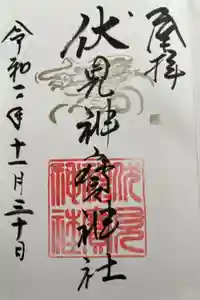 奉拝
伏見神寳神社
令和二年十一月三十日
伏見
神寳
神社